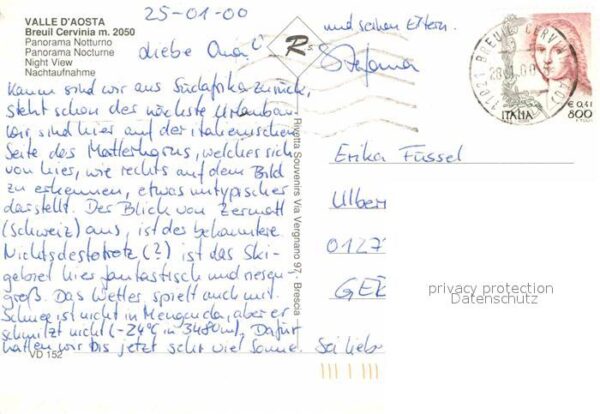 VALLE D'AOSTA
Breuil Cervinia m. 2050
Panorama Notturno
Panorama Nocturne
Night View
Nachtaufnahme
25-01-00
Liebe Oma!
Kaum sind wir aus Südafrika zurück,
steht schon der nächste Urlaub an.
Wir sind hier auf der italienischen
Seite des Matterhorns, welcher sich
von hier, wie rechts auf dem Bild
zu erkennen, etwas untypischer
darstellt. Der Blick von Zermatt
(Schweiz) aus, ist der bekanntere
Nichtsdestotrotz (?) ist das Ski-
gebiet hier fantastisch und riesen-
groß. Das Wetter spielt auch mit.
Schnee ist nicht in Mengen da, aber er
schmilzt nicht (-24°C in 3480m). Dafür
hatten wir bis jetzt sehr viel Sonne.
Sei lieb
und seinen Eltern.
Stefanie
VD 152
Rivetta Souvenirs Via Vergnano 97 - Brescia
R
11021 BREUIL CERVINIA (AO)
ITALIA
€ 0,41
800
Erika Füssel
0127
GE
privacy protection
Datenschutz